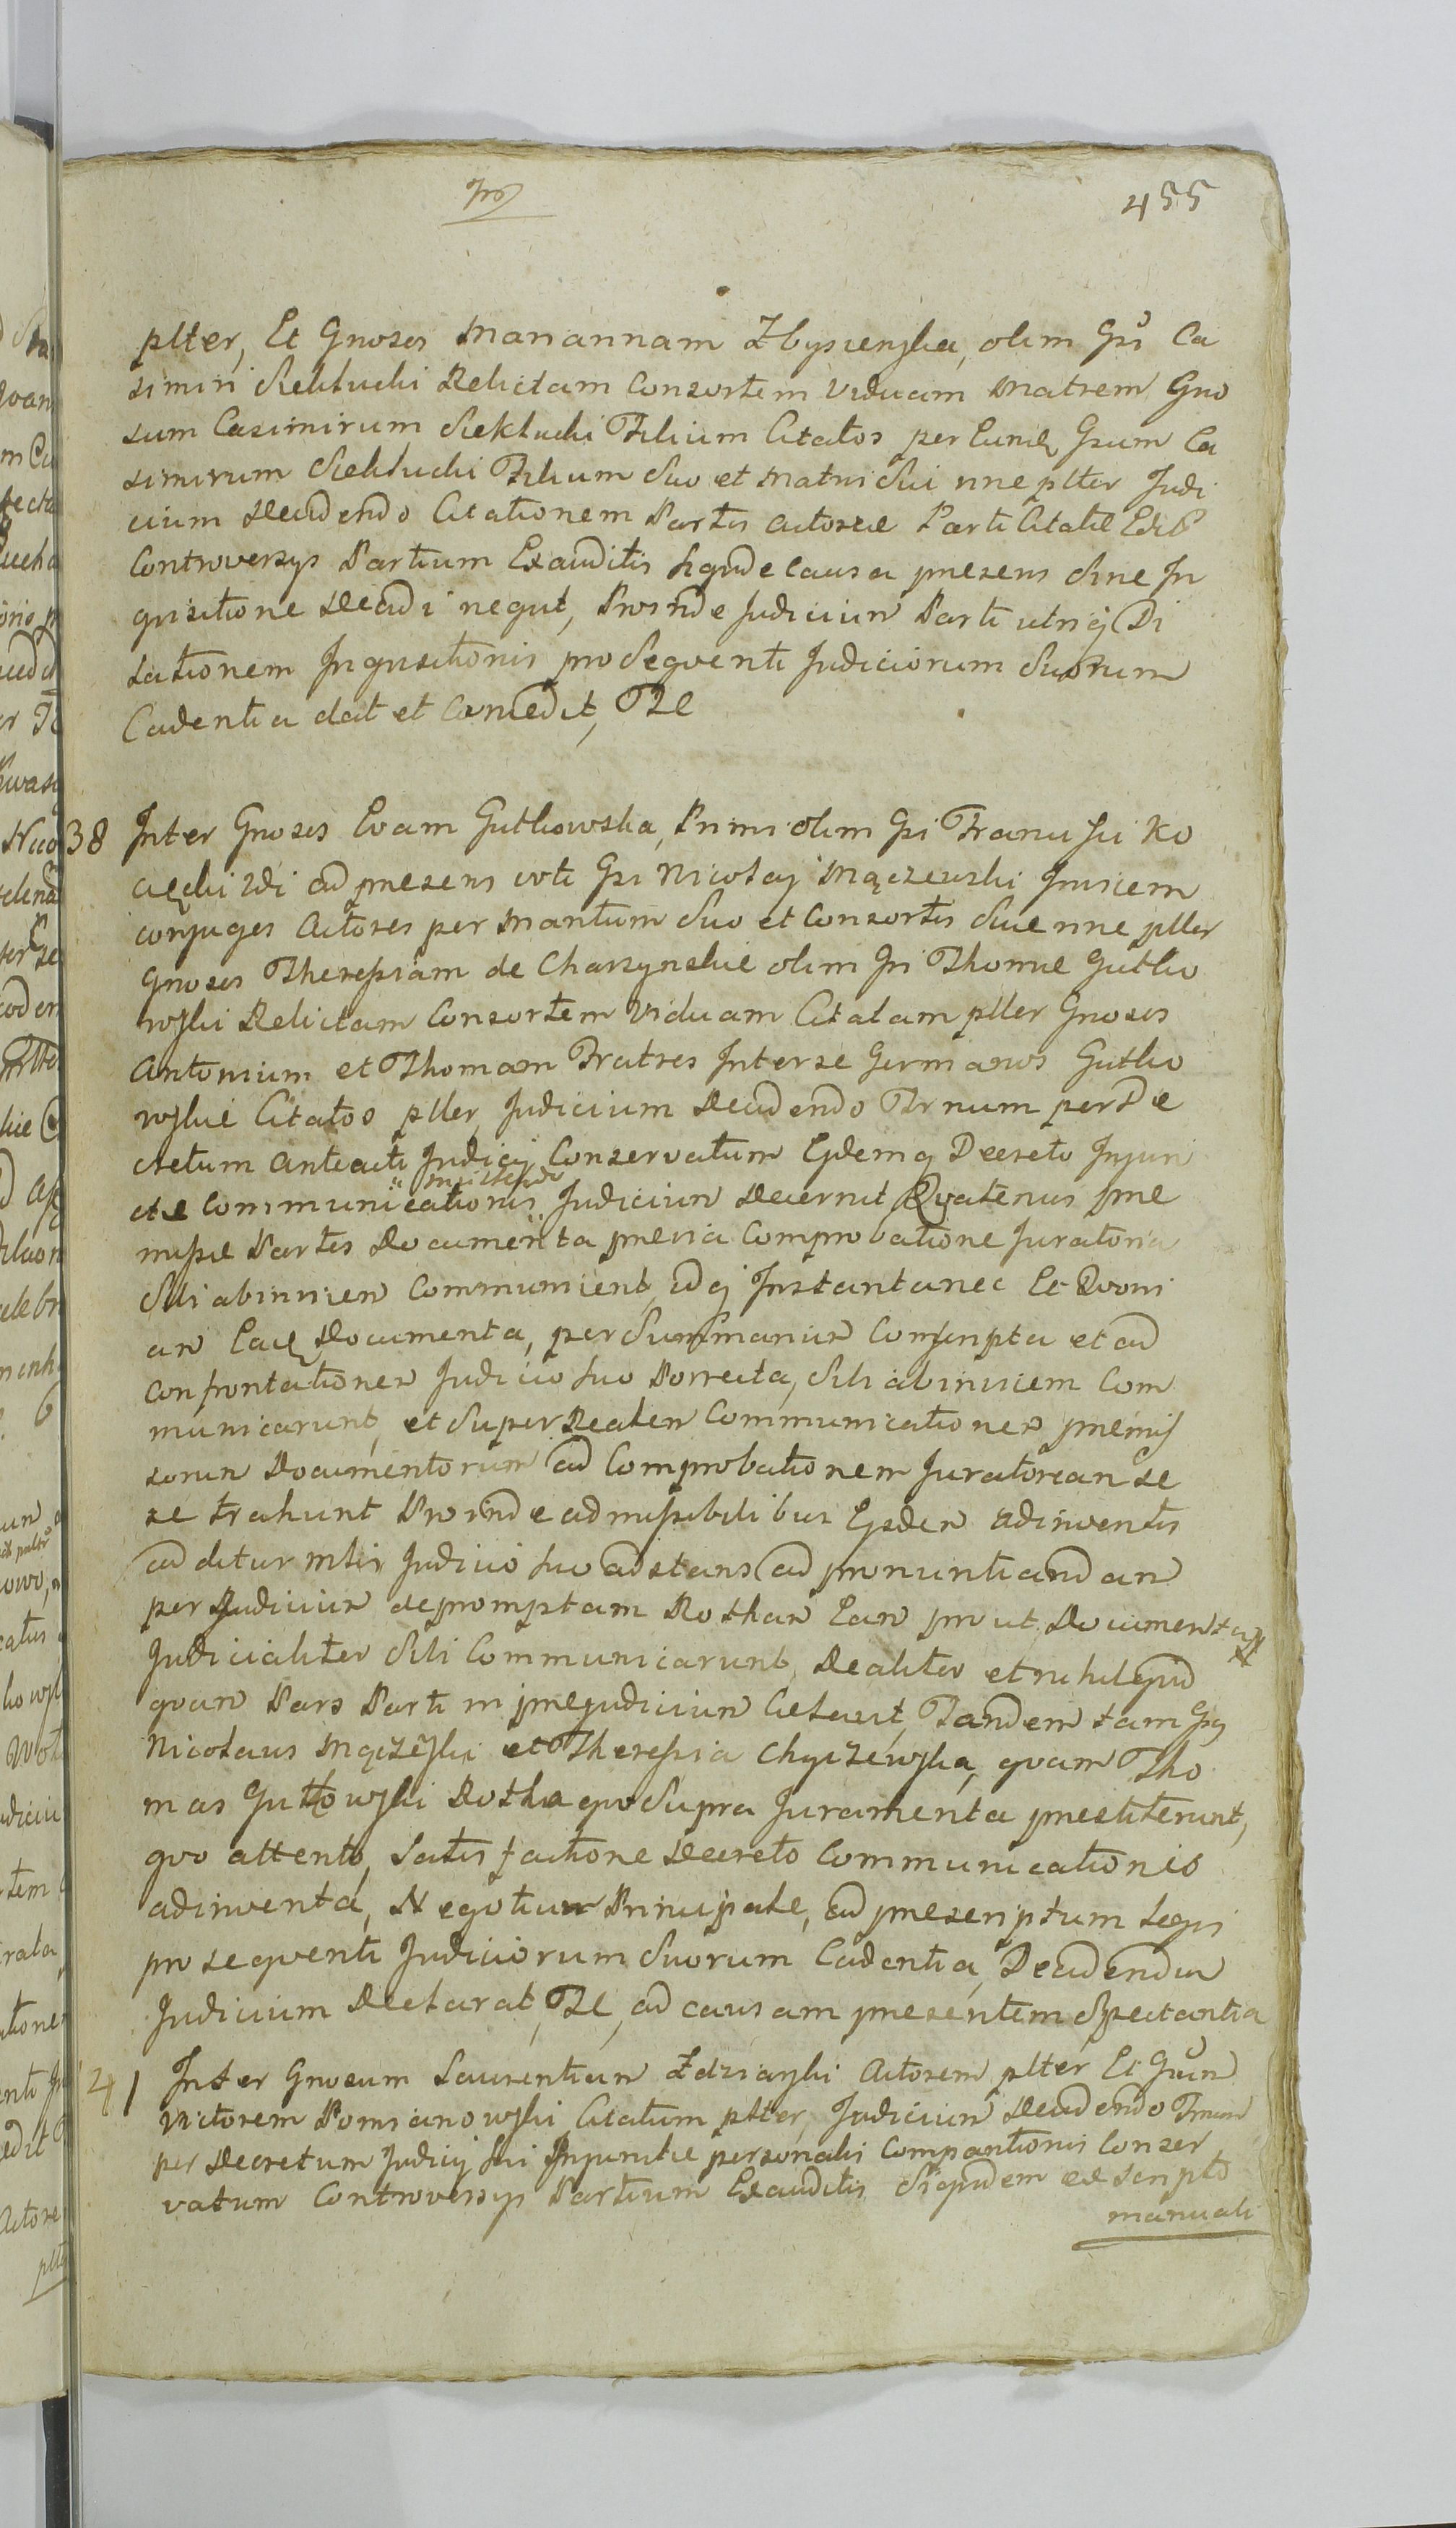 455
plter, Et Gnosos Mariannam Zbysienska, olim Gsi Ca
simiri Sekłucki Relictam Consortem Viduam Matrem Gno
sum Casimirum Sekłucki Filium Citatos per Eund Gsum Ca
simirum Sekłucki Filium Suo et Matris Sui nne plter Judi
cium Decidendo Citationem Partis Actoreæ Parti Citatæ
Controversys Partium Exauditis siqnde Causa presens Sine In
quisitione Decidi nequt, Proinde Judicium Parti utriq Di
lationem Inquisitionis pro Sequenti Judiciorum Suorum
Cadentia dat et Concedit,
38 Inter Gnosos Evam Gutkowska, Primi olim Gsi Francisci Ko
ad presens voti Gsi Nicolaj Mączewski Invicem
conjuges Actores per Maritum Suo et Consortis Suæ nne plter
Gnosos Theressiam de Charzynskie olim Gsi Thomæ Gutko
wski Relictam Consortem Viduam Citatam plter Gnosos
Antonium et Thomam Fratres Inter se Germanos Gutko
wskie Citatos plter, Judicium Decidendo Trnum per De
cretum Anteacti Judicij Conservatum Ejdemq Decreto Injun
insistendo
ctæ Communicationis Judicium Decernit Quatenus præ
missæ Partes Documenta previa Comprobatione Juratoria
Sibi abinvicem Communicent, idq Instantanee Et Quoni
am Ead Documenta, per Summarium Conscripta et ad
Confrontationem Judicio suo Porrecta, Sibi abinvicem Com
municarunt, et Super Realem Communicationem premis
sorum Documentorum ad Comprobationem Juratoream Se
se trahunt Proinde admissibilibus Ejsdem adinventis
Judicio suo adstans ad pronuntiandam
per Judicium depromptam Rotham Eam prout Documenta
Judicialiter Sibi Communicarunt, Realiter et nihil
quam Pars Parti in prejudicium Celavit, Tandem tam Gsg
Nicolaus Mączeski et Theressia Chyczewska, quam Tho
mas Gutkowski Rotha quo Supra Juramenta prestiterunt,
quo attento, Satisfactione Decreto Communicationis
adinventa, Negotium Principale, ad prescriptum Legis
pro sequenti Judiciorum Suorum Cadentia, Decidendum
Judicium Declarat, ad causam presentem Spectantia
41 Inter Gnosum Laurentium Zdziarski Actorem plter Et Gsum
Victorem Pomianowski Citatum plter, Judicium Decidendo Trnum
per Decretum Judicij sui Injunctæ personalis Comparitionis Conser
vatum Controversys Partium Exauditis Siquidem ex Scripto
manuali